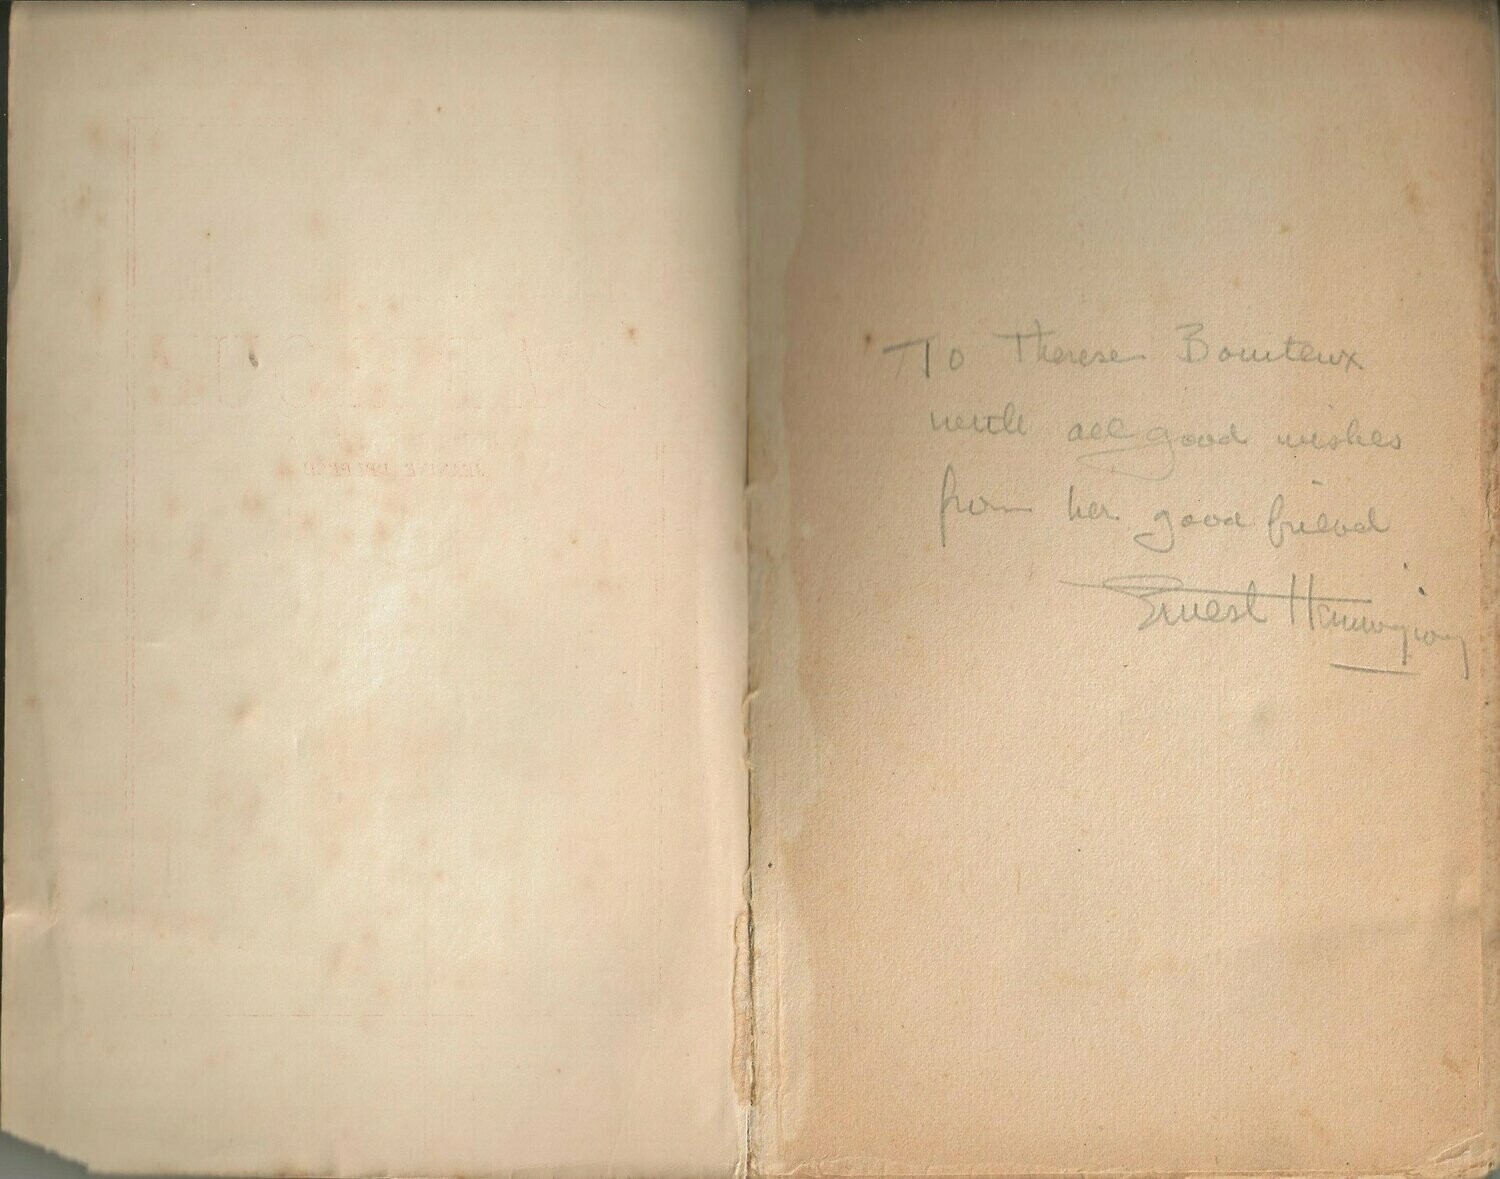 To Therese Bouiteux
with all good wishes
from her good friend
Ernest Hemingway